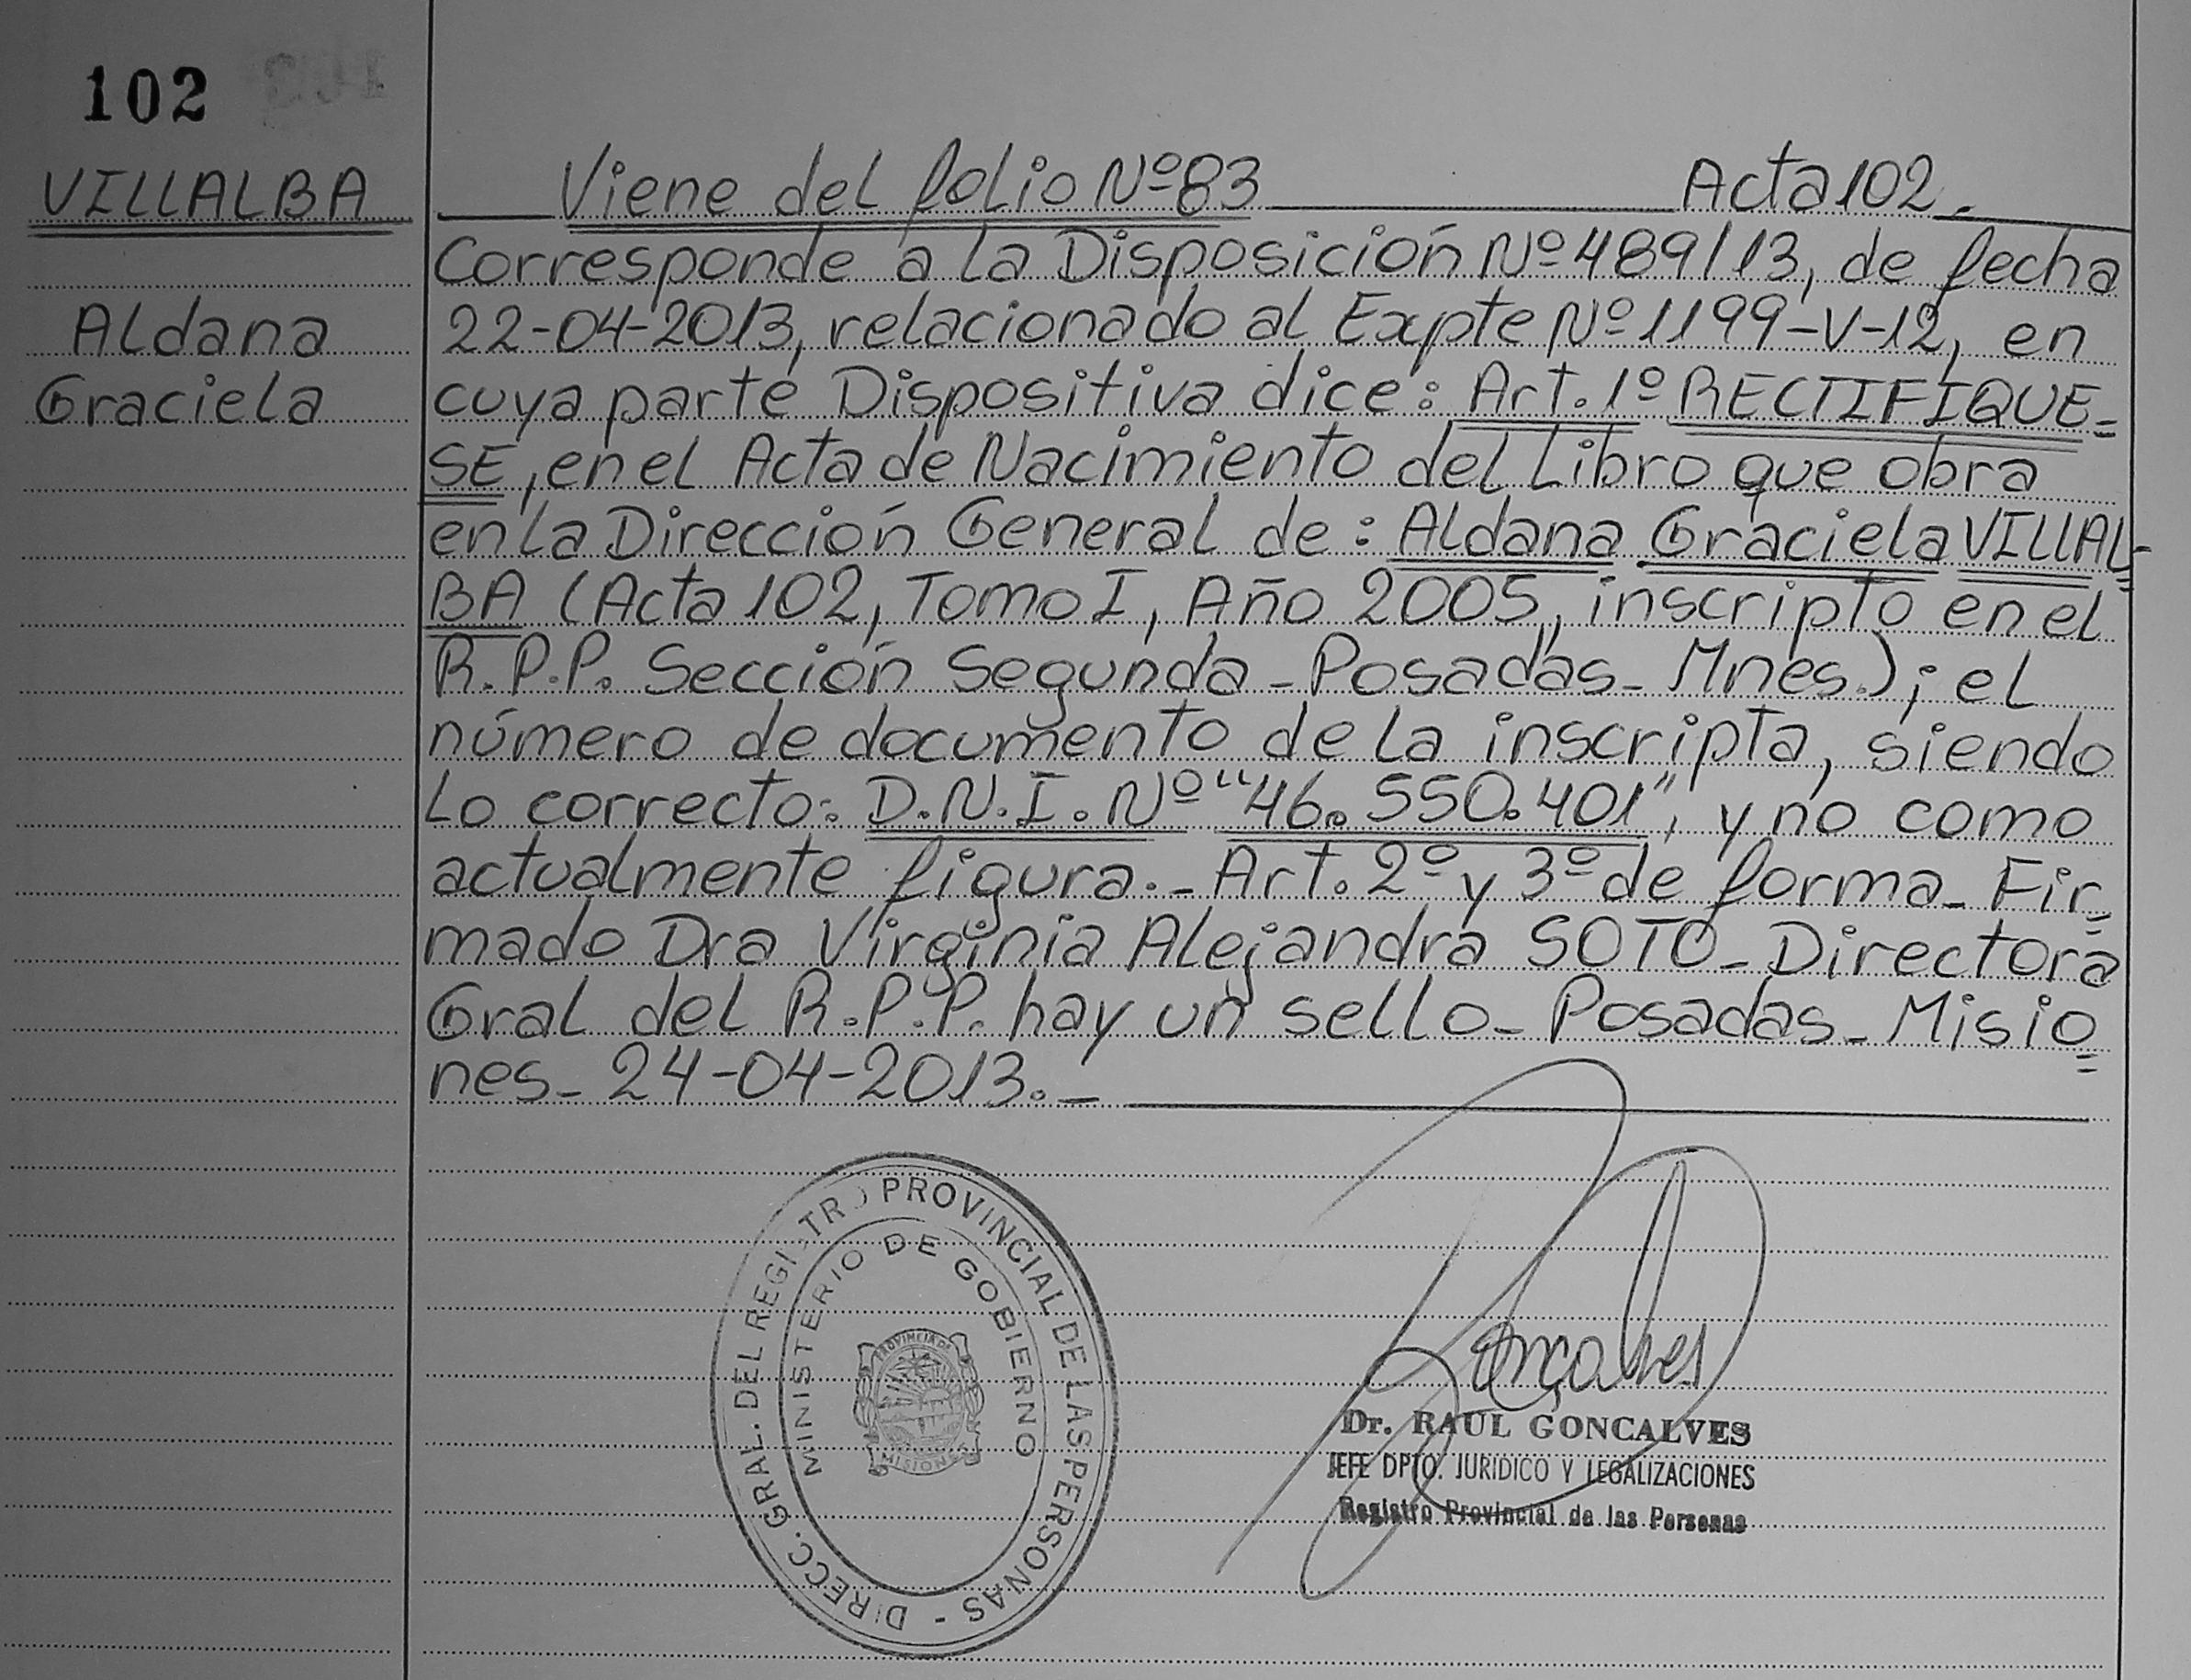 102
VILLALBA
Aldana
Graciela
Viene del folio Nº 83 Acta 102.
Corresponde a la Disposición Nº 489/13, de fecha
22-04-2013, relacionado al Expte Nº 1199-V-12, en
cuya parte Dispositiva dice: Art. 1º RECTIFIQUE=
SE, en el Acta de Nacimiento del Libro que obra
en la Dirección General de: Aldana Graciela VILLAL=
BA (Acta 102, Tomo I, Año 2005, inscripto en el
R.P.P. Sección Segunda - Posadas - Mnes.); el
número de documento de la inscripta, siendo
lo correcto: D.N.I. Nº "46.550.401", y no como
actualmente figura.- Art. 2º y 3º de forma - Fir=
mado Dra Virginia Alejandra SOTO - Directora
Gral del R.P.P. hay un sello - Posadas - Misio=
nes - 24-04-2013.-
DIRECC. GRAL. DEL REGISTRO PROVINCIAL DE LAS PERSONAS -
MINISTERIO DE GOBIERNO
PROVINCIA DE
MISIONES
Gonçalves
Dr. RAUL GONCALVES
JEFE DPTO. JURIDICO Y LEGALIZACIONES
Registro Provincial de las Personas